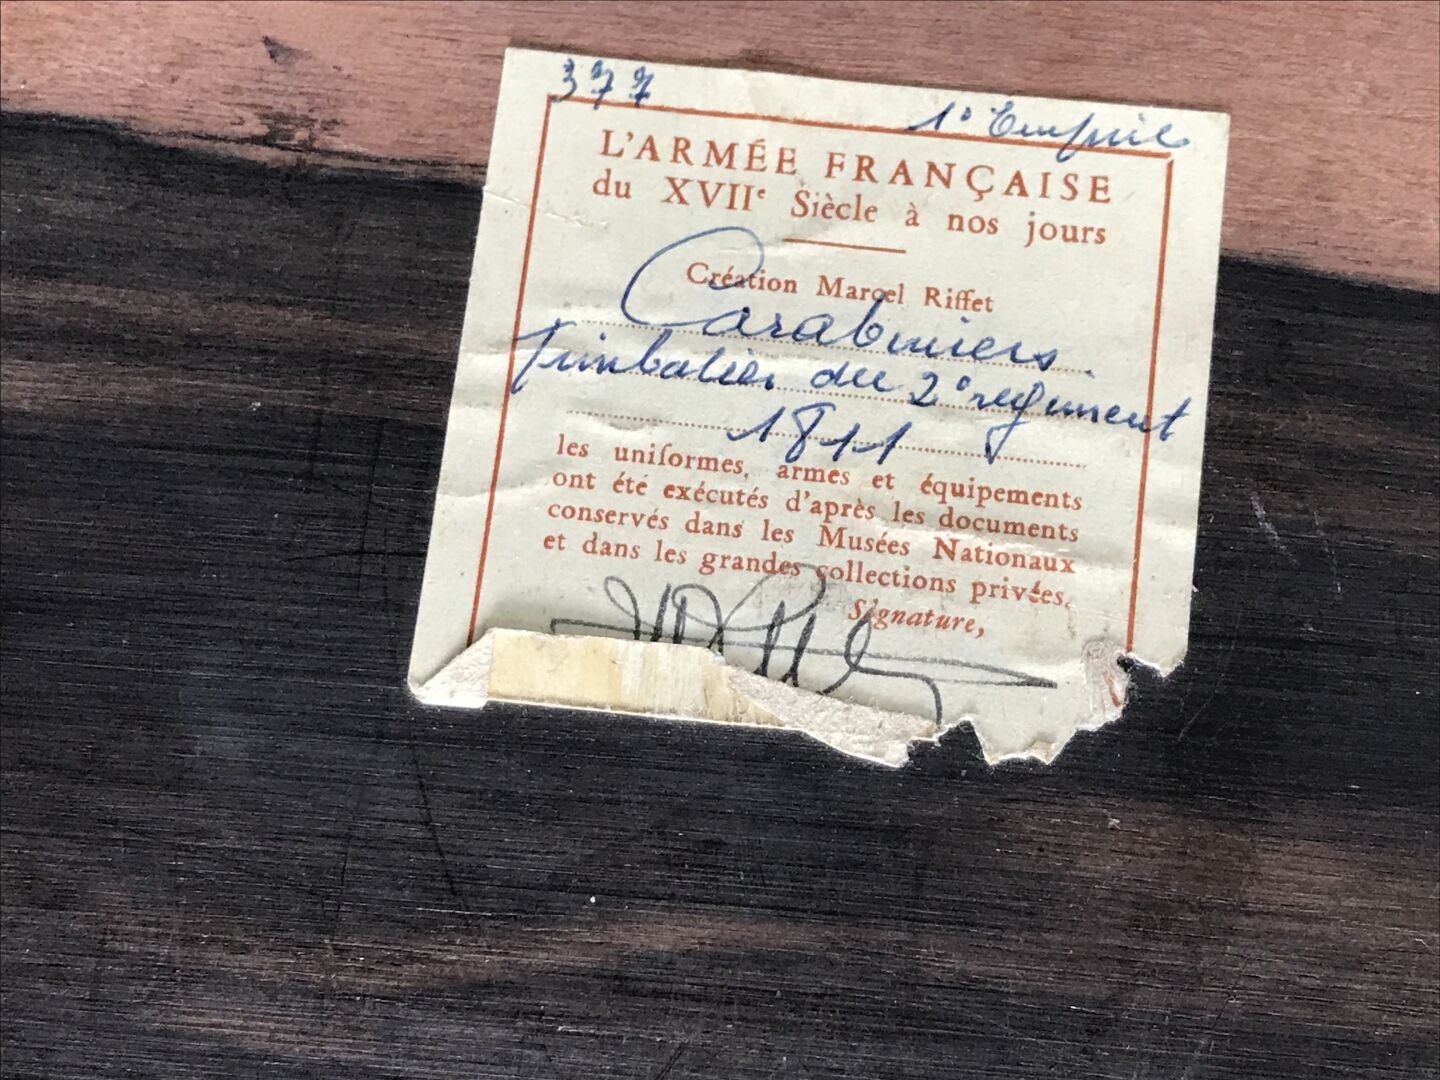 377
1° Empire
L'ARMÉE FRANÇAISE
du XVIIe Siècle à nos jours
Création Marcel Riffet
Carabiniers
timbalier du 2° regiment
1811
les uniformes, armes et équipements
ont été exécutés d'après les documents
conservés dans les Musées Nationaux
et dans les grandes collections privées.
Signature,